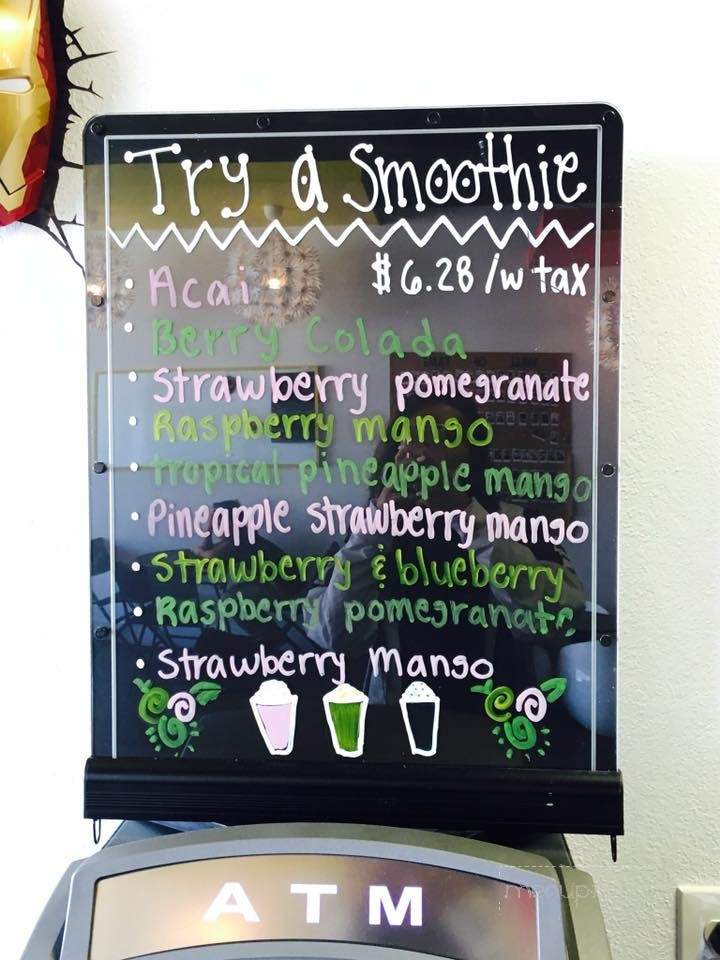 Try a Smoothie
$6.28 /w tax
• Acai
• Berry Colada
• Strawberry pomegranate
• Raspberry mango
• tropical pineapple mango
• Pineapple strawberry mango
• Strawberry & blueberry
• Raspberry pomegranate
• Strawberry Mango
ATM